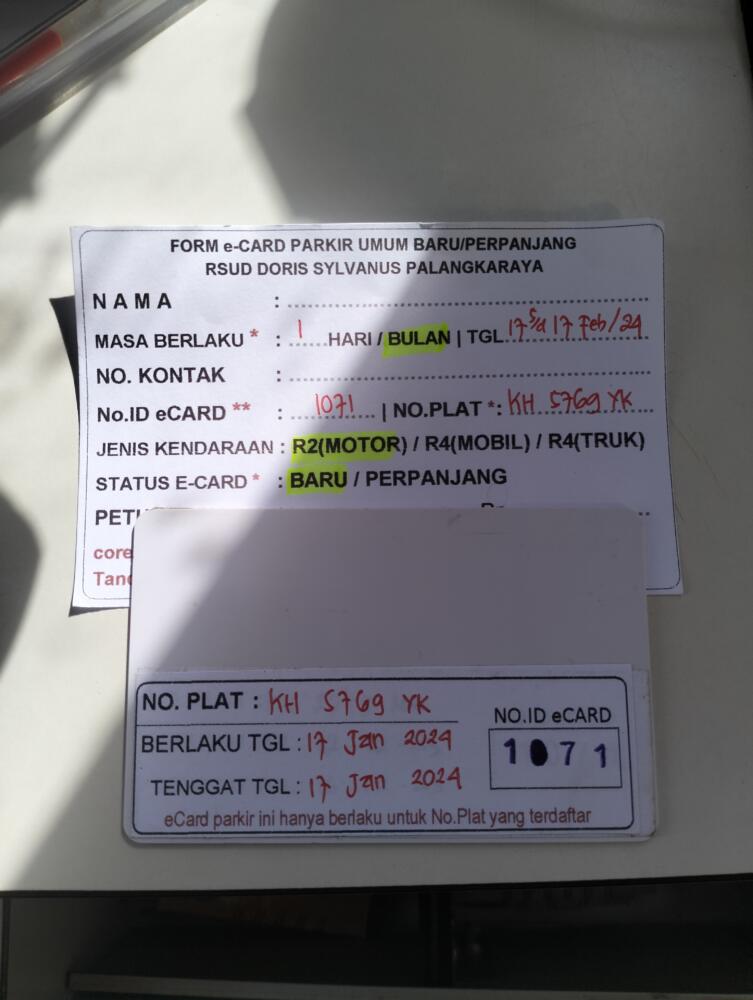 FORM e-CARD PARKIR UMUM BARU/PERPANJANG
RSUD DORIS SYLVANUS PALANGKARAYA
NAMA : ........................
MASA BERLAKU * : 1 HARI / BULAN | TGL. 17 s/d 17 Feb/24
NO. KONTAK : ........................
No.ID eCARD ** : 1071 | NO.PLAT *: KH 5769 YK
JENIS KENDARAAN : R2(MOTOR) / R4(MOBIL) / R4(TRUK)
STATUS E-CARD * : BARU / PERPANJANG
core
NO. PLAT : KH 5769 YK
BERLAKU TGL : 17 Jan 2024
TENGGAT TGL : 17 Jan 2024
NO.ID eCARD
1071
eCard parkir ini hanya berlaku untuk No.Plat yang terdaftar